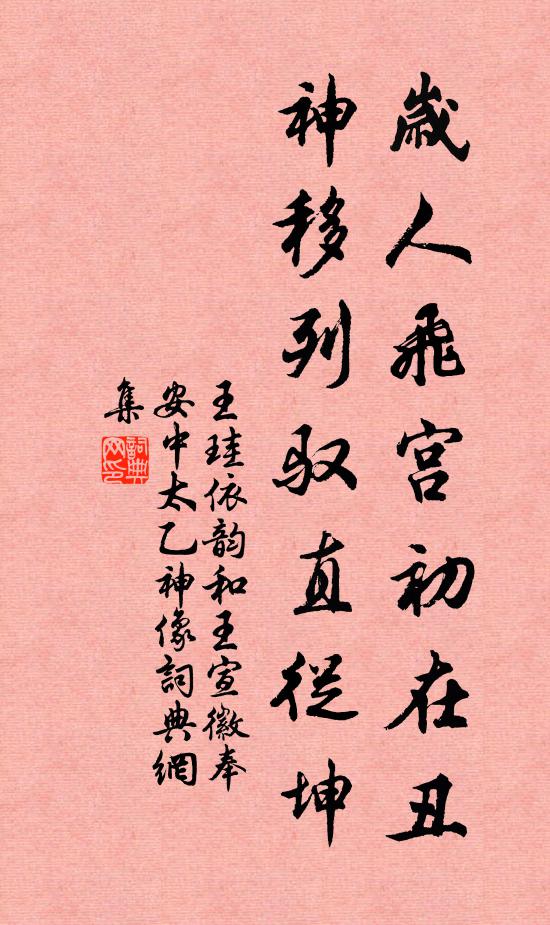 歲人飛宮初在丑
神移列驭直從坤
王珪依韵和王宣徽奉
安中太乙神像詞典網
集
詞典
网印